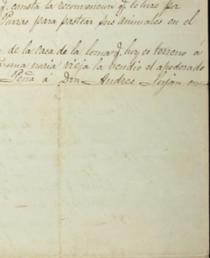 consta la reconvencion q. le hizo por
Parras para pastear sus animales en el
de la Casa de la loma q. hoy es terreno á
vieja la vendio el apoderado
Peña á Don Andres